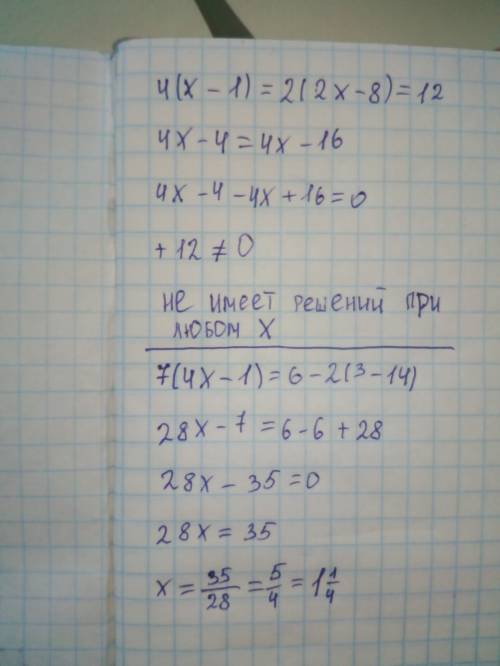 4(x - 1) = 2(2x - 8) = 12
4x - 4 = 4x - 16
4x - 4 - 4x + 16 = 0
+ 12 ≠ 0
не имеет решений при
любом x
7(4x - 1) = 6 - 2(3 - 14)
28x - 7 = 6 - 6 + 28
28x - 35 = 0
28x = 35
x = 35/28 = 5/4 = 1 1/4